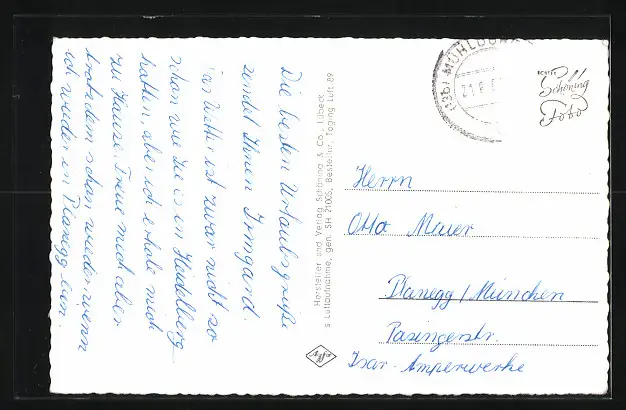 Die besten Urlaubsgrüße
sendet Ihnen Irmgard.
Das Wetter ist zwar nicht so
schön wie Sie es in Heidelberg
hatten, aber ich erhole mich
zu Hause. Freue mich aber
trotzdem schon wieder wenn
ich wieder in Planegg bin.
Hersteller und Verlag Schöning & Co., Lübeck
s Luftaufnahme, gen. SH 21005, Bestellnr. Töging Luft 89
Agfa
(13b) MÜHLDORF
21.8.6
ECHTES
Schöning
Foto
Herrn
Otto Maier
Planegg / München
Pasingerstr.
Isar-Amperwerke